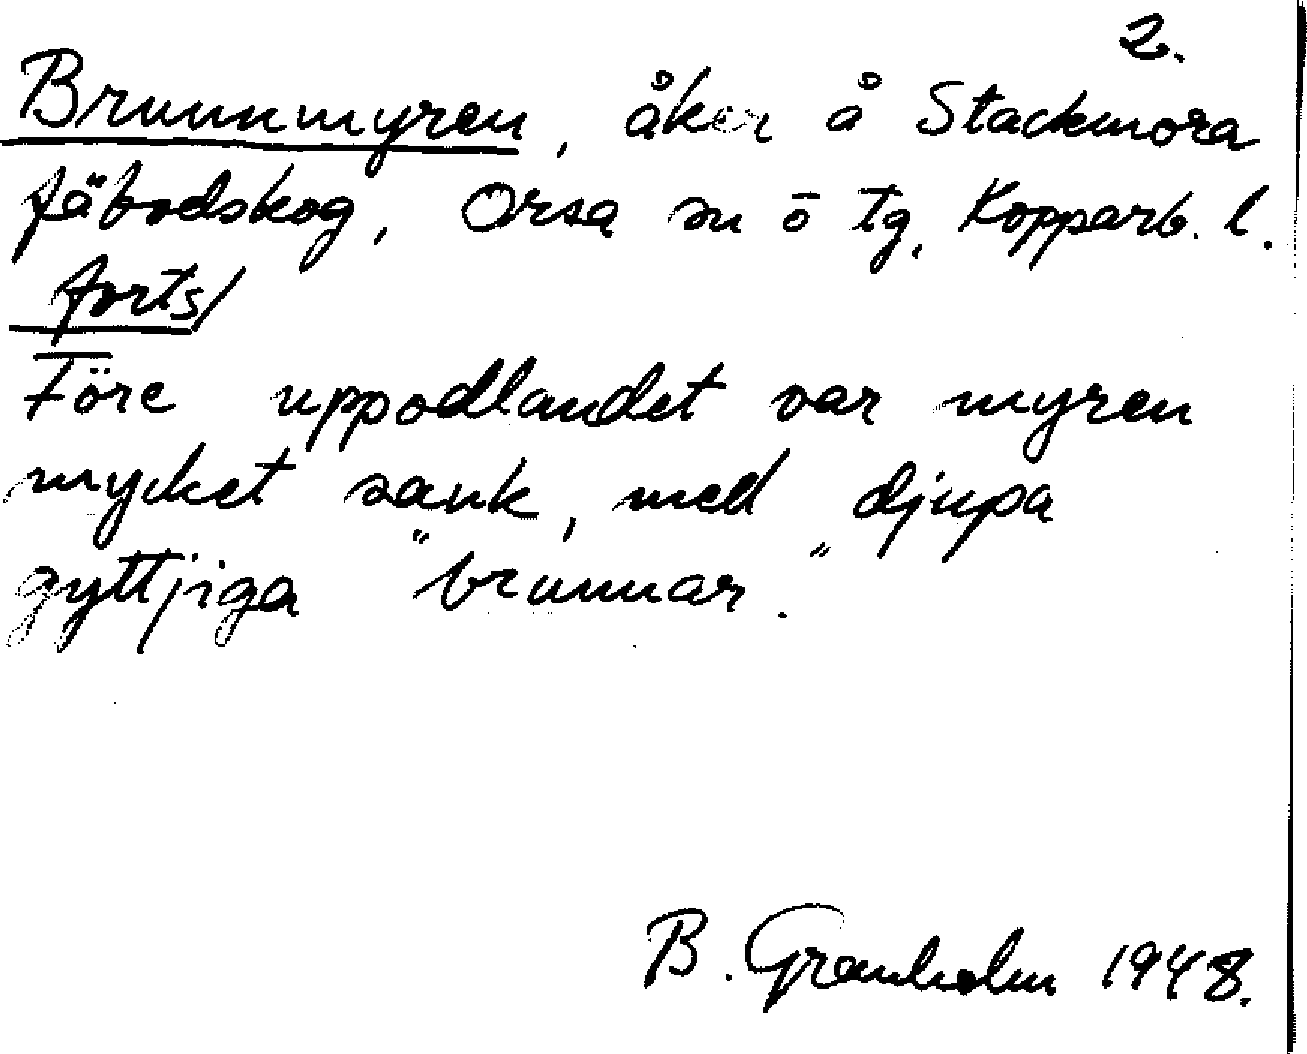 2.
Brunnmyren, åker å Stackmora
fäbodskog, Orsa sn ö tg, Kopparb. l.
forts/
Före uppodlandet var myren
mycket sank, med djupa
gyttjiga "brunnar".
B. Granholm 1948.